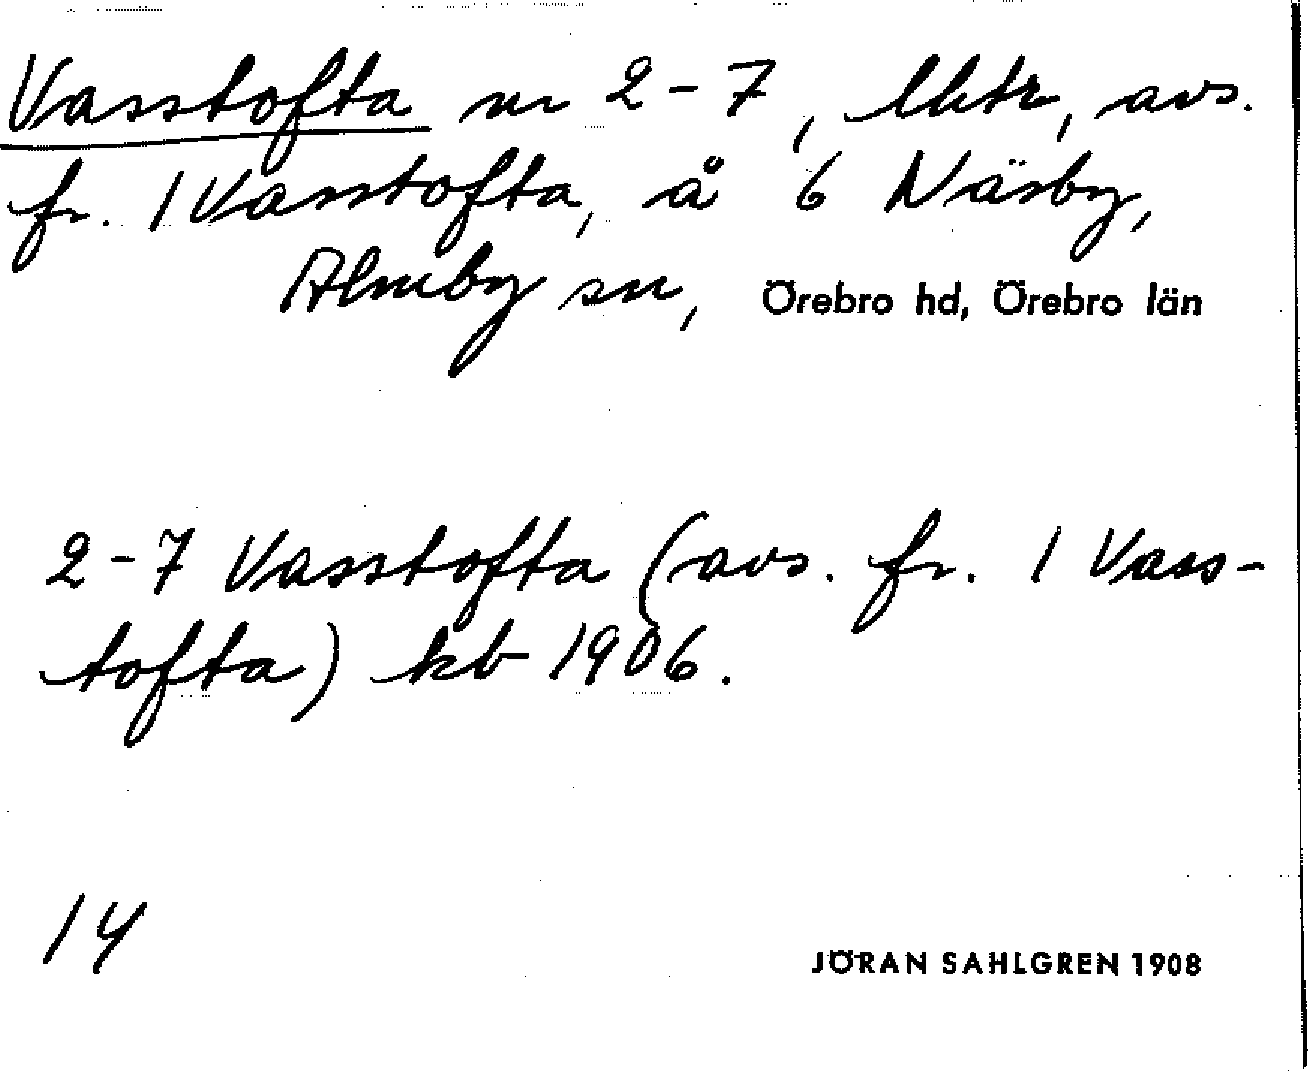 Vasstofta nr 2-7, lhtr, avs.
fr. 1 Vasstofta, å 6 Näsby,
Almby sn, Örebro hd, Örebro län
2-7 Vasstofta (avs. fr. 1 Vass-
tofta) kb 1906.
14
JÖRAN SAHLGREN 1908